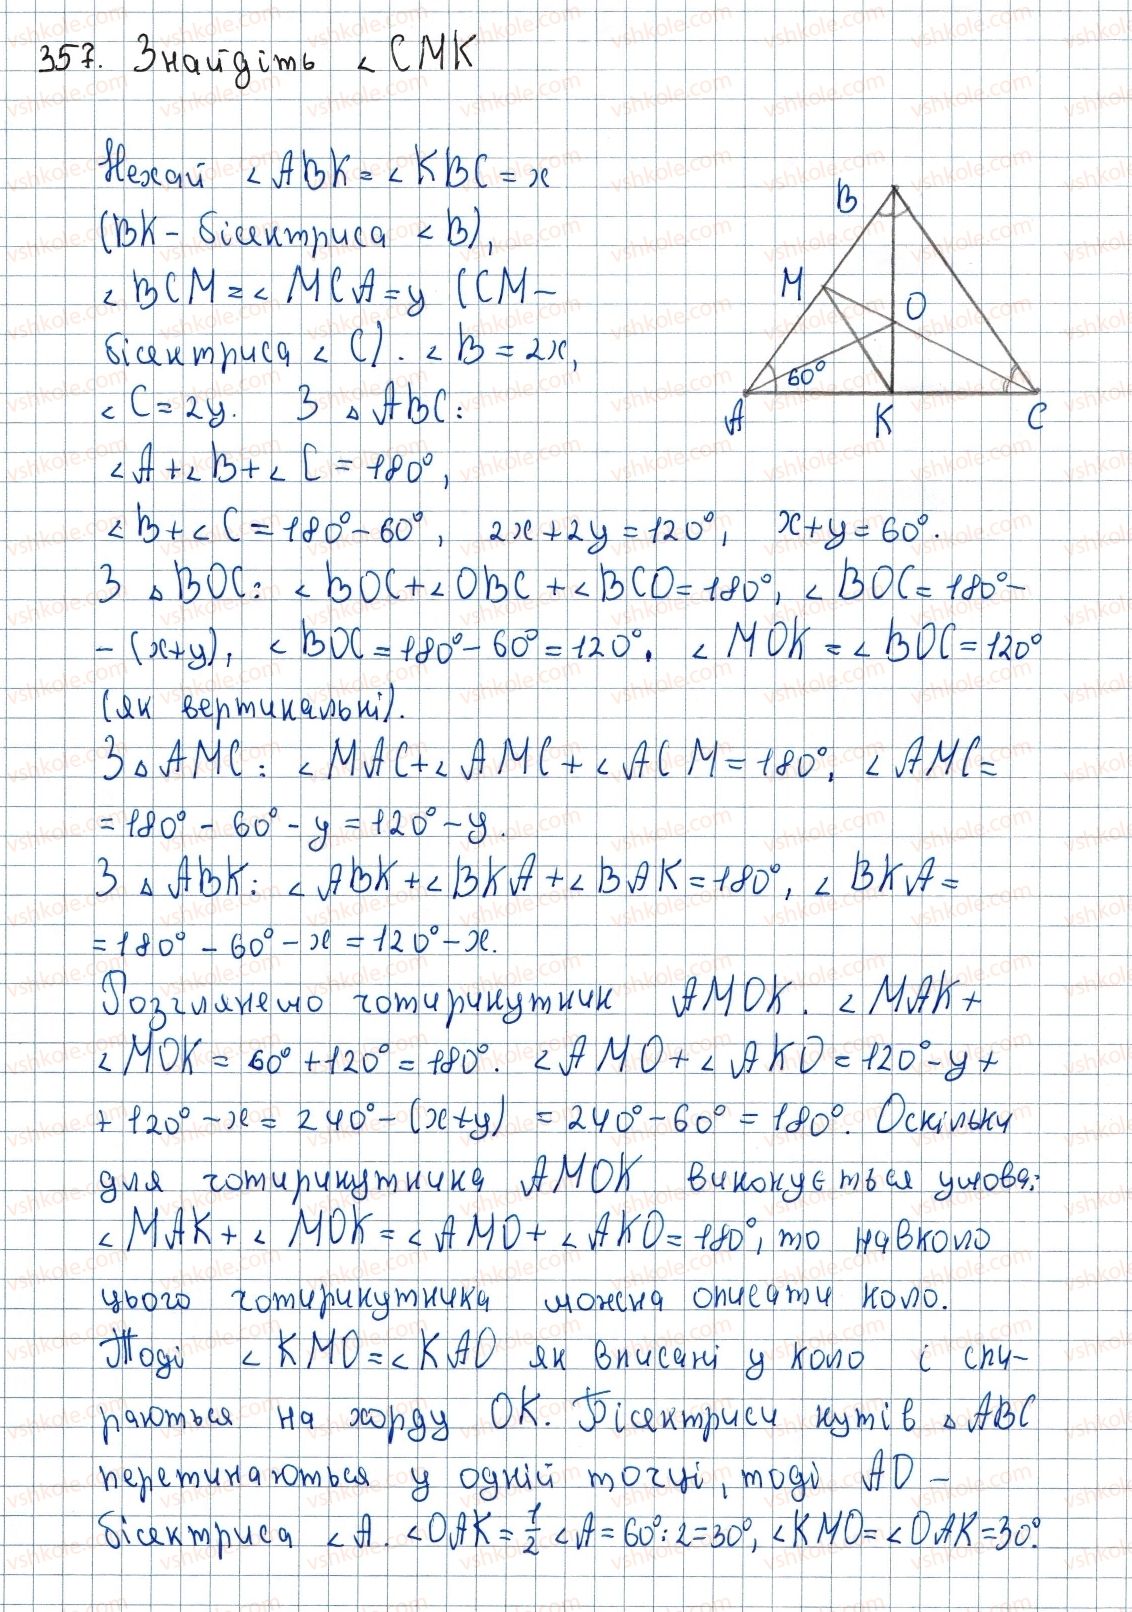 357. Знайдіть ∠CMK
Нехай ∠ABK = ∠KBC = x
(BK - бісектриса ∠B),
∠BCM = ∠MCA = y (CM -
бісектриса ∠C). ∠B = 2x,
∠C = 2y. З △ABC:
∠A + ∠B + ∠C = 180°,
∠B + ∠C = 180° - 60°, 2x + 2y = 120°, x + y = 60°.
З △BOC: ∠BOC + ∠OBC + ∠BCO = 180°, ∠BOC = 180° -
- (x+y), ∠BOC = 180° - 60° = 120°. ∠MOK = ∠BOC = 120°
(як вертикальні).
З △AMC: ∠MAC + ∠AMC + ∠ACM = 180°, ∠AMC =
= 180° - 60° - y = 120° - y.
З △ABK: ∠ABK + ∠BKA + ∠BAK = 180°, ∠BKA =
= 180° - 60° - x = 120° - x.
Розглянемо чотирикутник AMOK. ∠MAK +
∠MOK = 60° + 120° = 180°. ∠AMO + ∠AKO = 120° - y +
+ 120° - x = 240° - (x+y) = 240° - 60° = 180°. Оскільки
для чотирикутника AMOK виконується умова:
∠MAK + ∠MOK = ∠AMO + ∠AKO = 180°, то навколо
цього чотирикутника можна описати коло.
Тоді ∠KMO = ∠KAO як вписані у коло і спи-
раються на хорду OK. Бісектриси кутів △ABC
перетинаються у одній точці, тоді AO -
бісектриса ∠A. ∠OAK = 1/2 ∠A = 60° : 2 = 30°, ∠KMO = ∠OAK = 30°.
B
M
O
60°
A
K
C